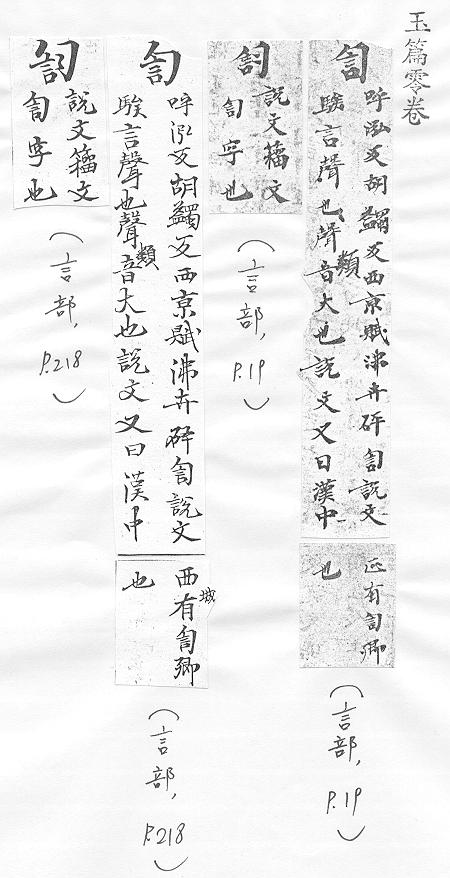 玉篇零卷
訇
呼泓反胡蠲反西京賦沸卉砰訇說文
駭言聲也聲類音大也說文又曰漢中
西有訇卿
也
(言部, P.19)
說文籀文
訇字也
(言部, P.19)
訇
呼泓反胡蠲反西京賦沸卉砰訇說文
駭言聲也聲類音大也說文又曰漢中
西城有訇卿
也
(言部, P.218)
說文籀文
訇字也
(言部, P.218)